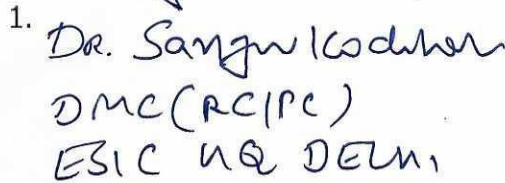 1.
DR. Sanjiv Kochhar
DMC (RC/PC)
ESIC HQ DELHI